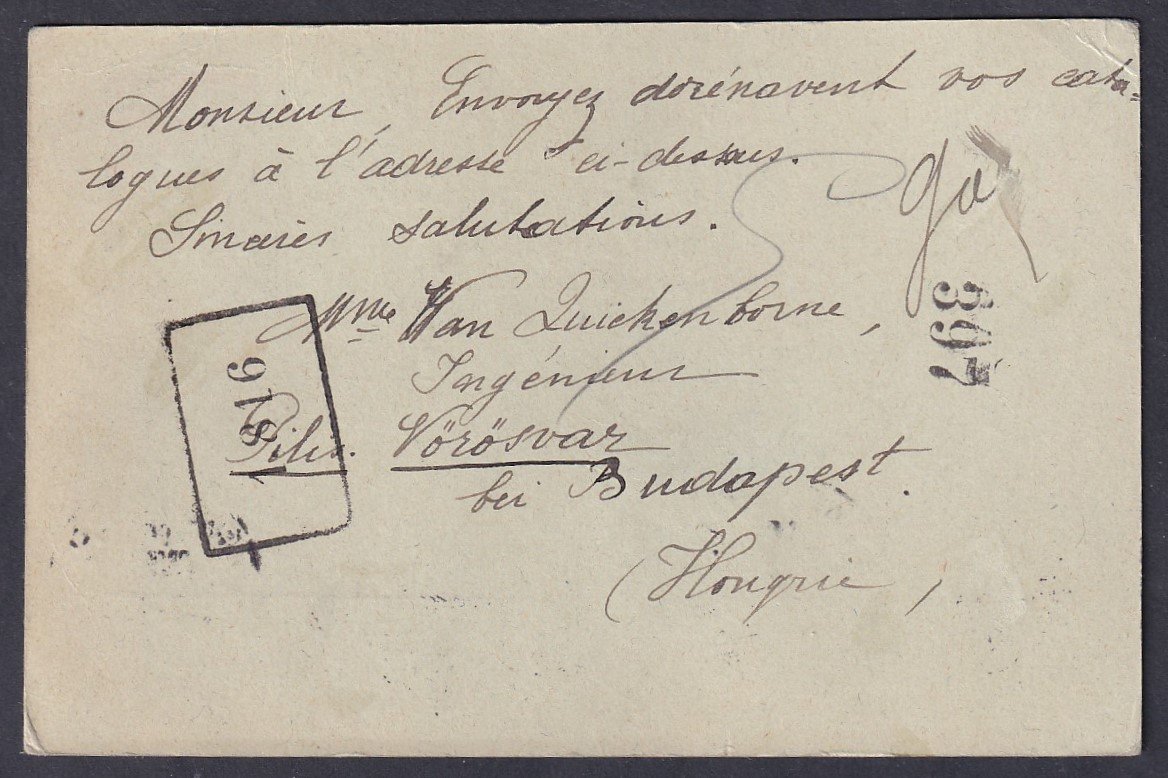 Monsieur, Envoyez dorénavent vos cata=
logues à l'adresse ci-dessus.
Sincères salutations.
go
397
Mme Van Quickenborne,
Ingénieur
Pilis. Vörösvar
bei Budapest.
(Hongrie,